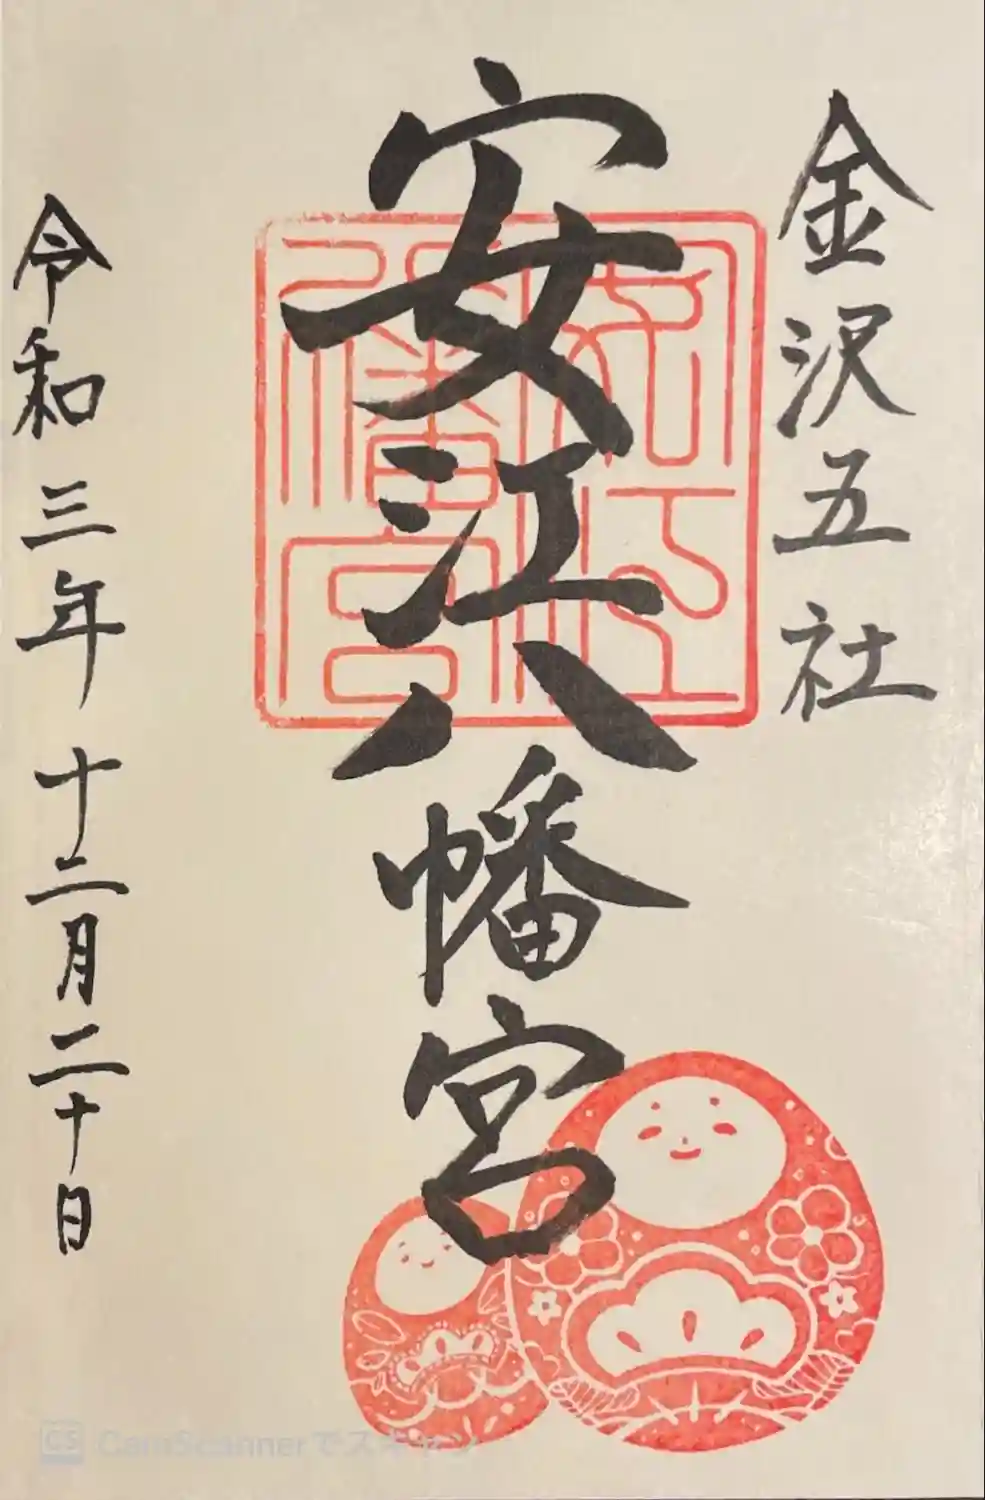 金沢五社
安江八幡宮
令和三年十二月二十日
安江八幡宮
CS CamScannerでスキャン